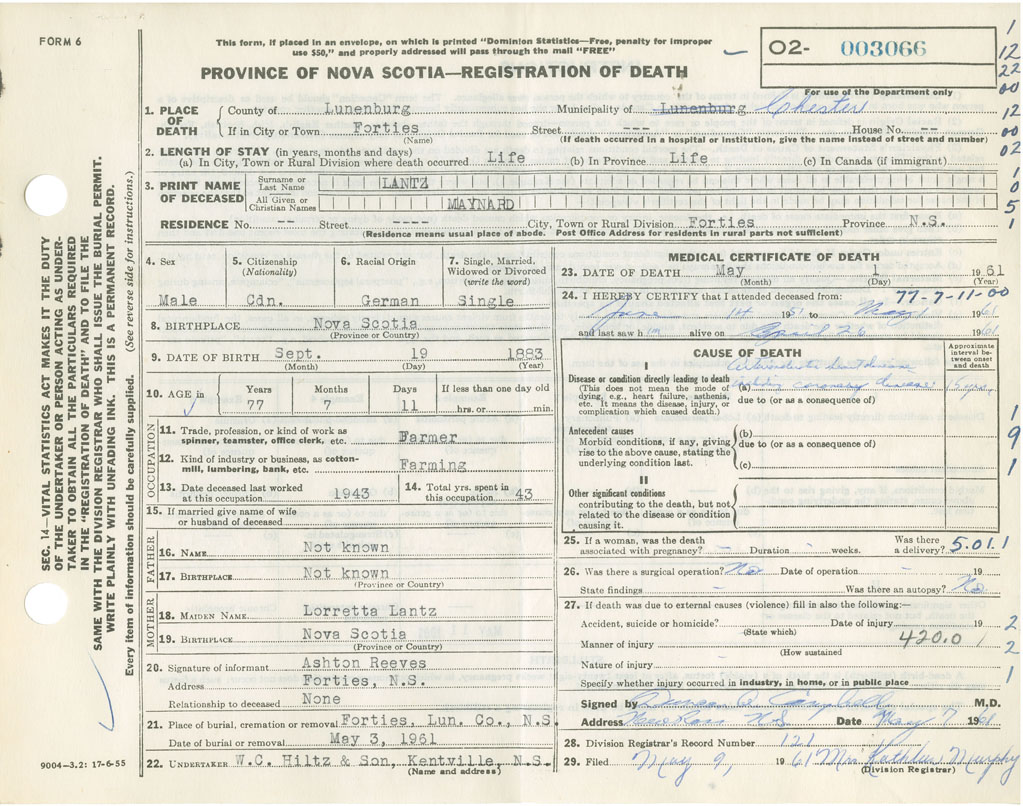 FORM 6
This form, if placed in an envelope, on which is printed "Dominion Statistics—Free, penalty for improper
use $50," and properly addressed will pass through the mail "FREE"
PROVINCE OF NOVA SCOTIA—REGISTRATION OF DEATH
02- 003066
For use of the Department only
1. PLACE OF DEATH
County of Lunenburg Municipality of Lunenburg Chester
If in City or Town Forties Street --- House No. --
(Name) (If death occurred in a hospital or institution, give the name instead of street and number)
2. LENGTH OF STAY (in years, months and days)
(a) In City, Town or Rural Division where death occurred Life (b) In Province Life (c) In Canada (if immigrant)
3. PRINT NAME OF DECEASED
Surname or Last Name LANTZ
All Given or Christian Names MAYNARD
RESIDENCE No. -- Street ---- City, Town or Rural Division Forties Province N.S.
(Residence means usual place of abode. Post Office Address for residents in rural parts not sufficient)
4. Sex
Male
5. Citizenship
(Nationality)
Cdn.
6. Racial Origin
German
7. Single, Married,
Widowed or Divorced
(write the word)
Single
8. BIRTHPLACE Nova Scotia
(Province or Country)
9. DATE OF BIRTH Sept. 19 1883
(Month) (Day) (Year)
10. AGE in Years Months Days If less than one day old
77 7 11 hrs. or min.
OCCUPATION
11. Trade, profession, or kind of work as
spinner, teamster, office clerk, etc. Farmer
12. Kind of industry or business, as cotton-
mill, lumbering, bank, etc. Farming
13. Date deceased last worked
at this occupation 1943
14. Total yrs. spent in
this occupation 43
15. If married give name of wife
or husband of deceased
FATHER
16. NAME Not known
17. BIRTHPLACE Not known
(Province or Country)
MOTHER
18. MAIDEN NAME Lorretta Lantz
19. BIRTHPLACE Nova Scotia
(Province or Country)
20. Signature of informant Ashton Reeves
Address Forties, N.S.
Relationship to deceased None
21. Place of burial, cremation or removal Forties, Lun. Co., N.S
Date of burial or removal May 3, 1961
22. UNDERTAKER W.C. Hiltz & Son, Kentville, N.S.
(Name and address)
MEDICAL CERTIFICATE OF DEATH
23. DATE OF DEATH May 1 1961
(Month) (Day) (Year)
24. I HEREBY CERTIFY that I attended deceased from: 77-7-11-00
June 14 1951 to May 1 1961
and last saw him alive on April 26 1961
CAUSE OF DEATH
Approximate interval between onset and death
I
Disease or condition directly leading to death
(This does not mean the mode of
dying, e.g., heart failure, asthenia,
etc. It means the disease, injury, or
complication which caused death.)
(a) coronary disease 5 yrs
due to (or as a consequence of)
Antecedent causes
Morbid conditions, if any, giving
rise to the above cause, stating the
underlying condition last.
(b)
due to (or as a consequence of)
(c)
II
Other significant conditions
contributing to the death, but not
related to the disease or condition
causing it.
25. If a woman, was the death
associated with pregnancy? - Duration - weeks. Was there
a delivery? 5.01.1
26. Was there a surgical operation? No Date of operation - 19
State findings - Was there an autopsy? No
27. If death was due to external causes (violence) fill in also the following:—
Accident, suicide or homicide? Date of injury 19
(State which)
Manner of injury 420.0
(How sustained)
Nature of injury -
Specify whether injury occurred in industry, in home, or in public place
Signed by Duncan A. Campbell M.D.
Address New Ross N.S. Date May 7 1961
28. Division Registrar's Record Number 121
29. Filed May 9, 1961 Mrs Kathleen Murphy
(Division Registrar)
SEC. 14—VITAL STATISTICS ACT MAKES IT THE DUTY
OF THE UNDERTAKER OR PERSON ACTING AS UNDER-
TAKER TO OBTAIN ALL THE PARTICULARS REQUIRED
IN THE "REGISTRATION OF DEATH" AND TO FILE THE
SAME WITH THE DIVISION REGISTRAR WHO SHALL ISSUE THE BURIAL PERMIT.
WRITE PLAINLY WITH UNFADING INK. THIS IS A PERMANENT RECORD.
Every item of information should be carefully supplied. (See reverse side for instructions.)
9004-3.2: 17-6-55
1
12
22
00
12
02
1
0
5
1
1
9
1
1
2
2
1